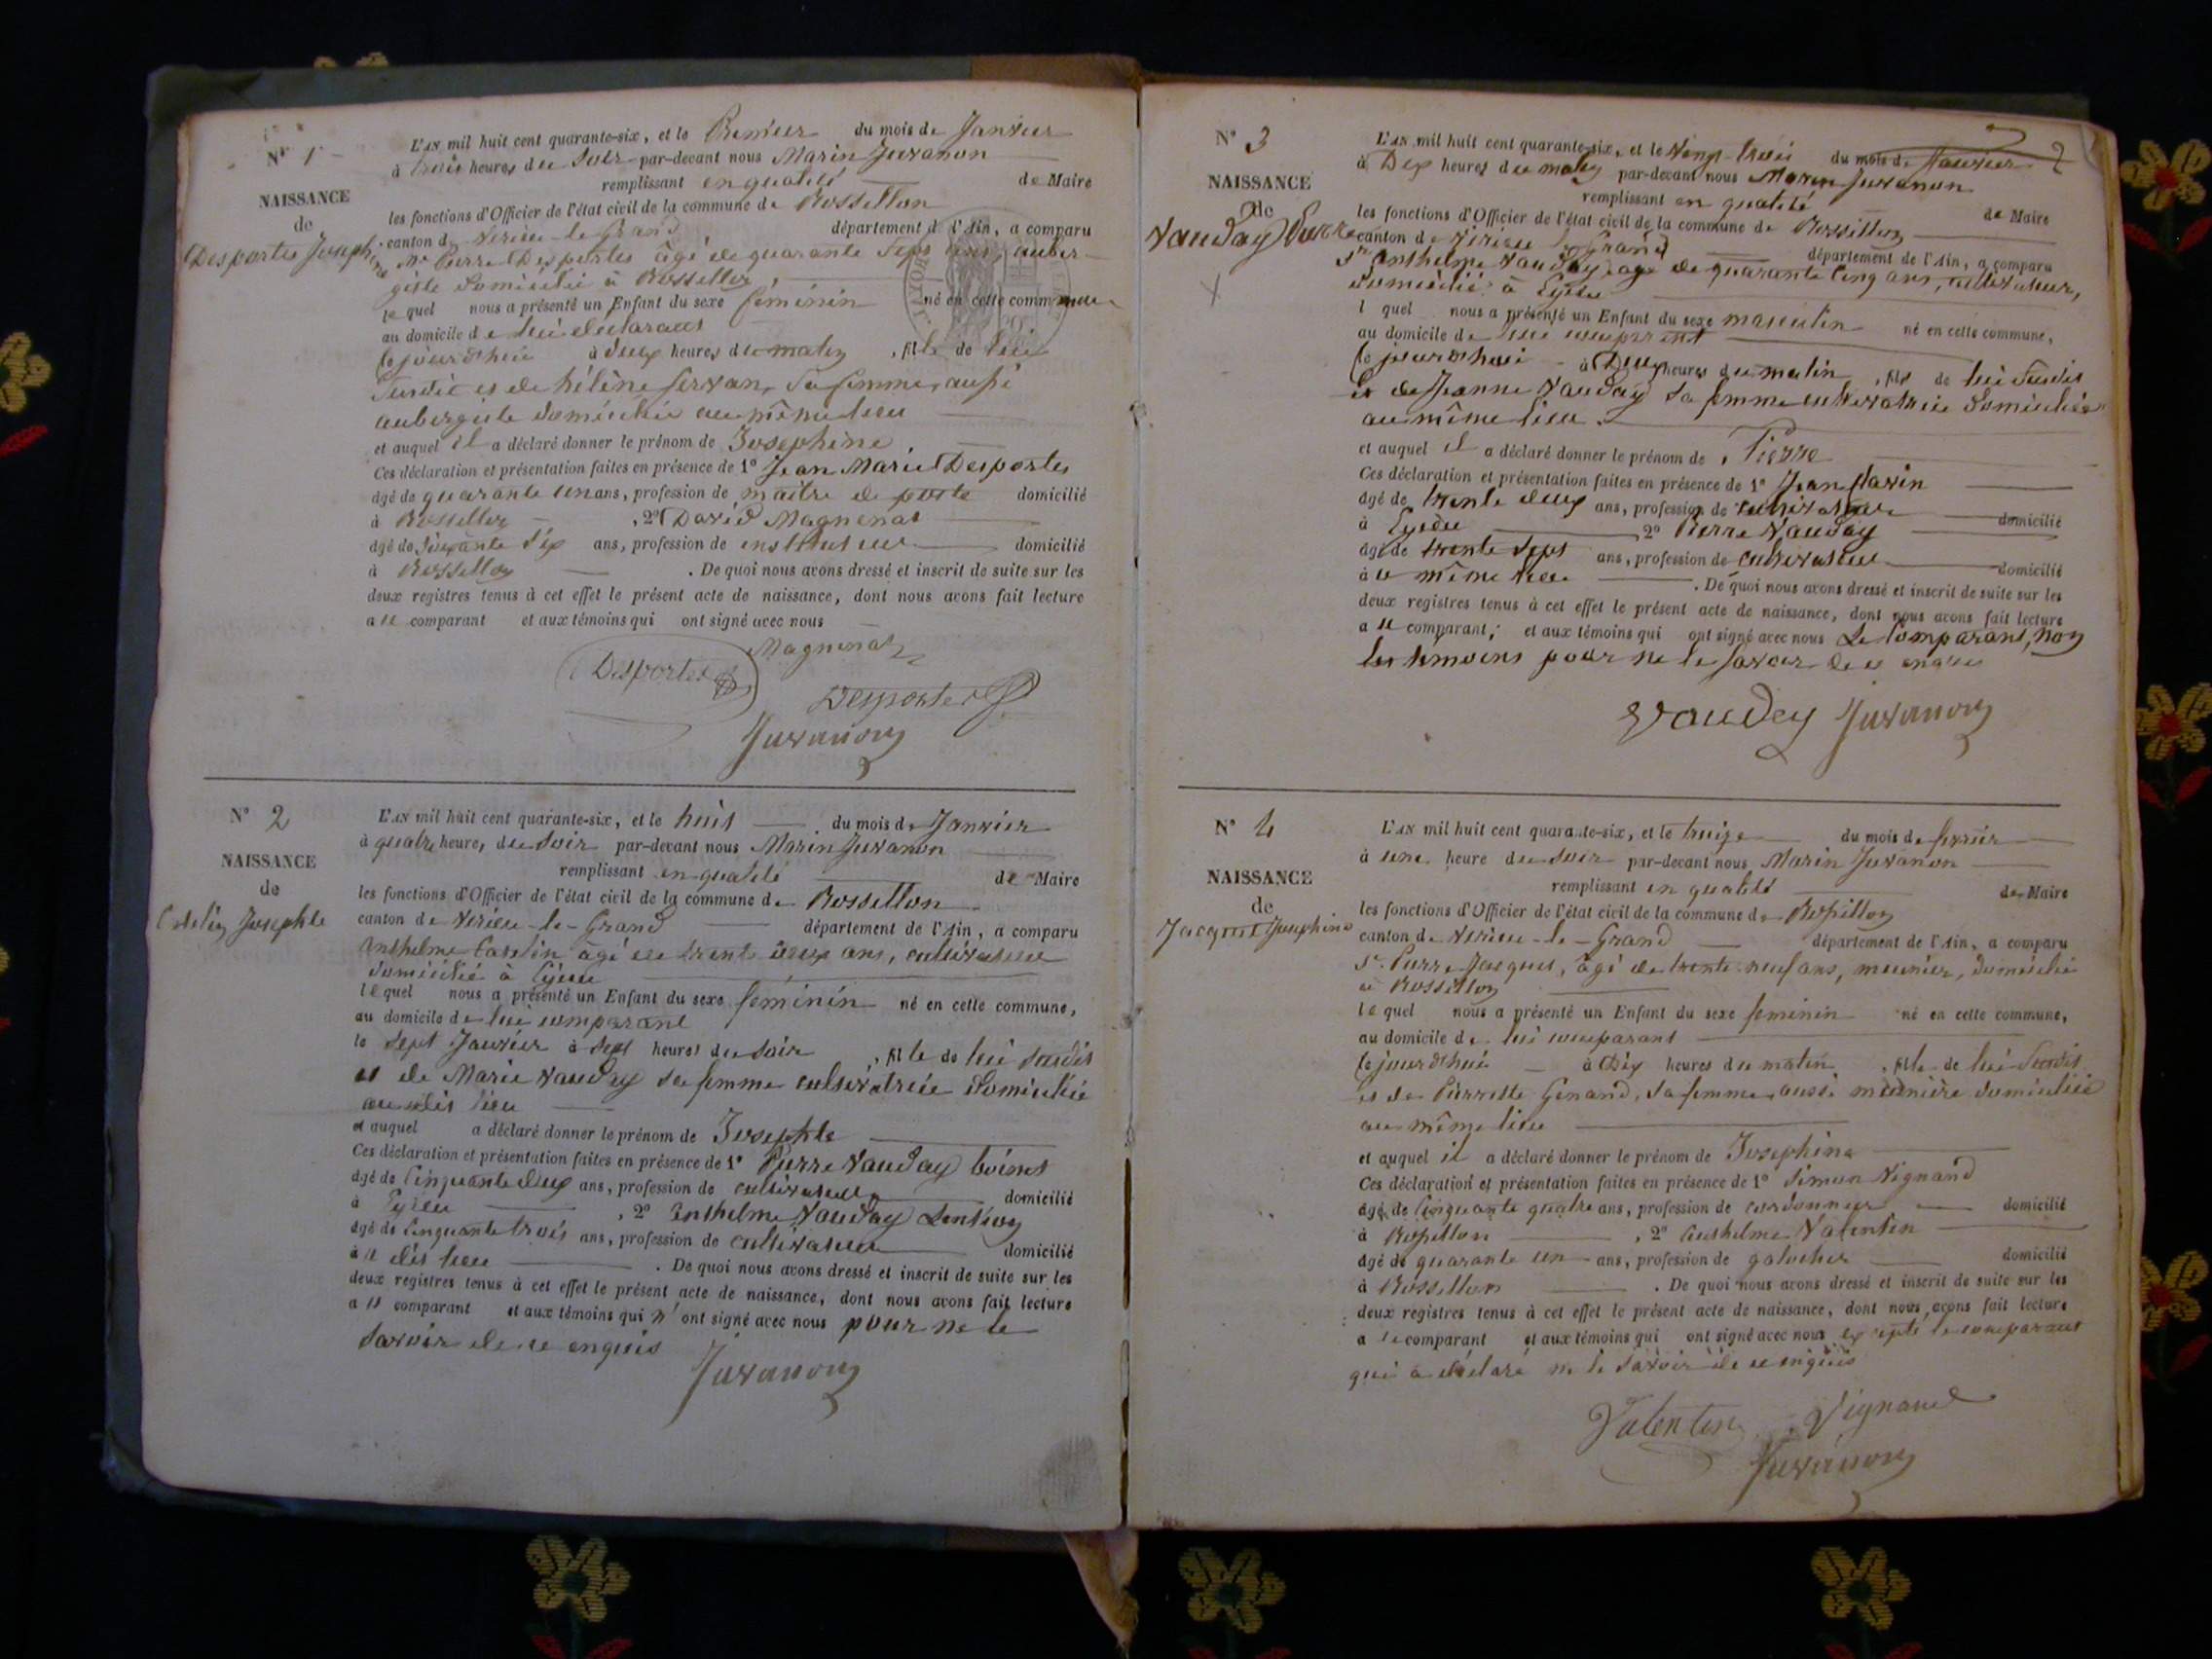 N° 1
NAISSANCE
de
Desportes Josephine
L'AN mil huit cent quarante-six, et le Premier du mois de Janvier
à trois heures du soir par-devant nous Marin Juvanon
remplissant en qualité de Maire
les fonctions d'Officier de l'état civil de la commune de Rossillon
canton de Virieu-le-Grand département de l'Ain, a comparu
Mr Pierre Desportes âgé de quarante sept ans, auber-
giste domicilié à Rossillon
lequel nous a présenté un Enfant du sexe féminin né en cette commune
au domicile de lui déclarant
ce jourd'hui à deux heures du matin, fille de lui
susdit et de hélène Servan, sa femme, aussi
aubergiste domiciliée au même lieu
et auquel il a déclaré donner le prénom de Josephine
Ces déclaration et présentation faites en présence de 1° Jean Marie Desportes
âgé de quarante un ans, profession de maître de poste domicilié
à Rossillon, 2° David Magnenat
âgé de soixante six ans, profession de instituteur domicilié
à Rossillon. De quoi nous avons dressé et inscrit de suite sur les
deux registres tenus à cet effet le présent acte de naissance, dont nous avons fait lecture
a u comparant et aux témoins qui ont signé avec nous
Magnenat
Desportes
Desportes
Juvanon
N° 2
NAISSANCE
de
Catelin Josephte
L'AN mil huit cent quarante-six, et le huit du mois de Janvier
à quatre heures du soir par-devant nous Marin Juvanon
remplissant en qualité de Maire
les fonctions d'Officier de l'état civil de la commune de Rossillon
canton de Virieu-le-Grand département de l'Ain, a comparu
Anthelme Catelin âgé de trente deux ans, cultivateur
domicilié à Eyzieu
lequel nous a présenté un Enfant du sexe féminin né en cette commune,
au domicile de lui comparant
le sept Janvier à sept heures du soir, fille de lui susdit
et de Marie Vauday sa femme cultivatrice domiciliée
au dit lieu
et auquel a déclaré donner le prénom de Josephte
Ces déclaration et présentation faites en présence de 1° Pierre Vauday
âgé de Cinquante deux ans, profession de cultivateur domicilié
à Eyzieu, 2° Anthelme Vauday
âgé de Cinquante trois ans, profession de cultivateur domicilié
à u dit lieu. De quoi nous avons dressé et inscrit de suite sur les
deux registres tenus à cet effet le présent acte de naissance, dont nous avons fait lecture
a u comparant et aux témoins qui n' ont signé avec nous pour ne le
savoir de ce enquis
Juvanon
2
N° 3
NAISSANCE
de
Vauday Pierre
L'AN mil huit cent quarante-six, et le Vingt-trois du mois de Janvier
à Dix heures du matin par-devant nous Marin Juvanon
remplissant en qualité de Maire
les fonctions d'Officier de l'état civil de la commune de Rossillon
canton de Virieu le Grand département de l'Ain, a comparu
Sr Anthelme Vauday, âgé de quarante Cinq ans, cultivateur,
domicilié à Eyzieu
l quel nous a présenté un Enfant du sexe masculin né en cette commune,
au domicile de lui comparant
ce jourd'hui à Deux heures du matin, fils de lui susdit
et de Jeanne Vauday sa femme cultivatrice domiciliée
au même lieu.
et auquel il a déclaré donner le prénom de Pierre
Ces déclaration et présentation faites en présence de 1° Jean
âgé de trente deux ans, profession de cultivateur domicilié
à Eyzieu 2° Pierre Vauday
âgé de trente sept ans, profession de cultivateur domicilié
à u même lieu. De quoi nous avons dressé et inscrit de suite sur les
deux registres tenus à cet effet le présent acte de naissance, dont nous avons fait lecture
a u comparant, et aux témoins qui ont signé avec nous Le Comparant, non
les témoins pour ne le savoir de ce enquis
Vauday Juvanon
N° 4
NAISSANCE
de
Jacquet Josephine
L'AN mil huit cent quarante-six, et le treize du mois de fevrier
à une heure du soir par-devant nous Marin Juvanon
remplissant en qualité de Maire
les fonctions d'Officier de l'état civil de la commune de Rossillon
canton de Virieu-le-Grand département de l'Ain, a comparu
Sr Pierre Jacquet, âgé de trente neuf ans, meunier, domicilié
à Rossillon
lequel nous a présenté un Enfant du sexe feminin né en cette commune,
au domicile de lui comparant
ce jourd'hui à Dix heures du matin, fille de lui susdit
et de Pierrette Genand, sa femme, aussi meunière domiciliée
au même lieu
et auquel il a déclaré donner le prénom de Josephine
Ces déclaration et présentation faites en présence de 1° Simon Vignand
âgé de Cinquante quatre ans, profession de cordonnier domicilié
à Rossillon, 2° Anthelme Valentin
âgé de quarante un ans, profession de galochier domicilié
à Rossillon. De quoi nous avons dressé et inscrit de suite sur les
deux registres tenus à cet effet le présent acte de naissance, dont nous avons fait lecture
a u comparant et aux témoins qui ont signé avec nous excepté le comparant
qui a déclaré ne le savoir de ce enquis
Valentin Vignand
Juvanon